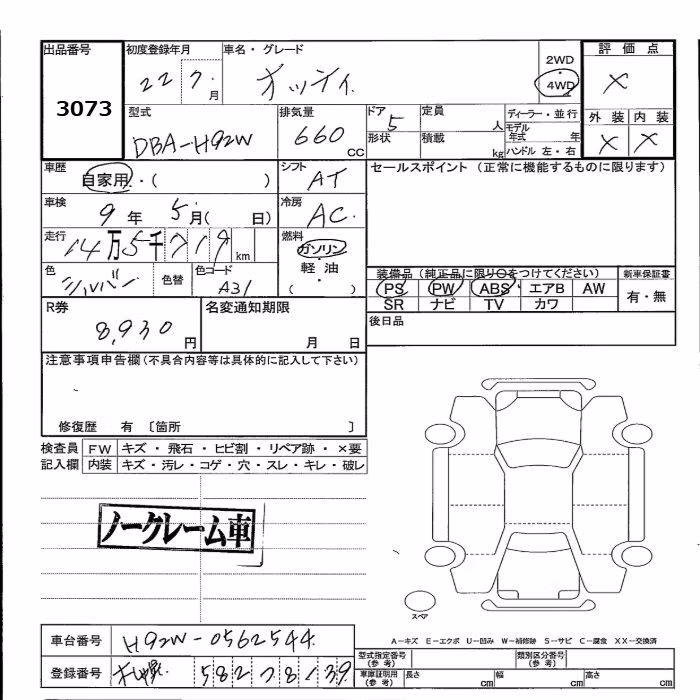 出品番号 初度登録年月 車名・グレード 2WD 評価点
3073 22 7月 オッティ 4WD ×
型式 排気量 ドア 定員 ディーラー・並行 外装 内装
DBA-H92W 660 CC 5 形状 人 積載 kg モデル年式 年 ハンドル 左・右 × ×
車歴 シフト セールスポイント (正常に機能するものに限ります)
自家用・( ) AT
車検 冷房
9年 5月( 日) AC
走行 燃料
14万5千719km ガソリン
色 色替 色コード ・軽油・
シルバー A31 ( )
装備品 (純正品に限り○をつけてください) 新車保証書
PS PW ABS エアB AW 有・無
SR ナビ TV カワ
R券 名変通知期限 後日品
8,930円 月 日
注意事項申告欄(不具合内容等は具体的に記入して下さい)
修復歴 有 〔箇所 〕
検査員 FW キズ・飛石・ヒビ割・リペア跡・×要
記入欄 内装 キズ・汚レ・コゲ・穴・スレ・キレ・破レ
ノークレーム車
スペア
A－キズ E－エクボ U－凹み W－補修跡 S－サビ C－腐食 XX－交換済
車台番号 H92W-0562544
型式指定番号(参考) 類別区分番号(参考)
登録番号 札幌 582
車庫証明用(参考) 長さ cm 幅 cm 高さ cm